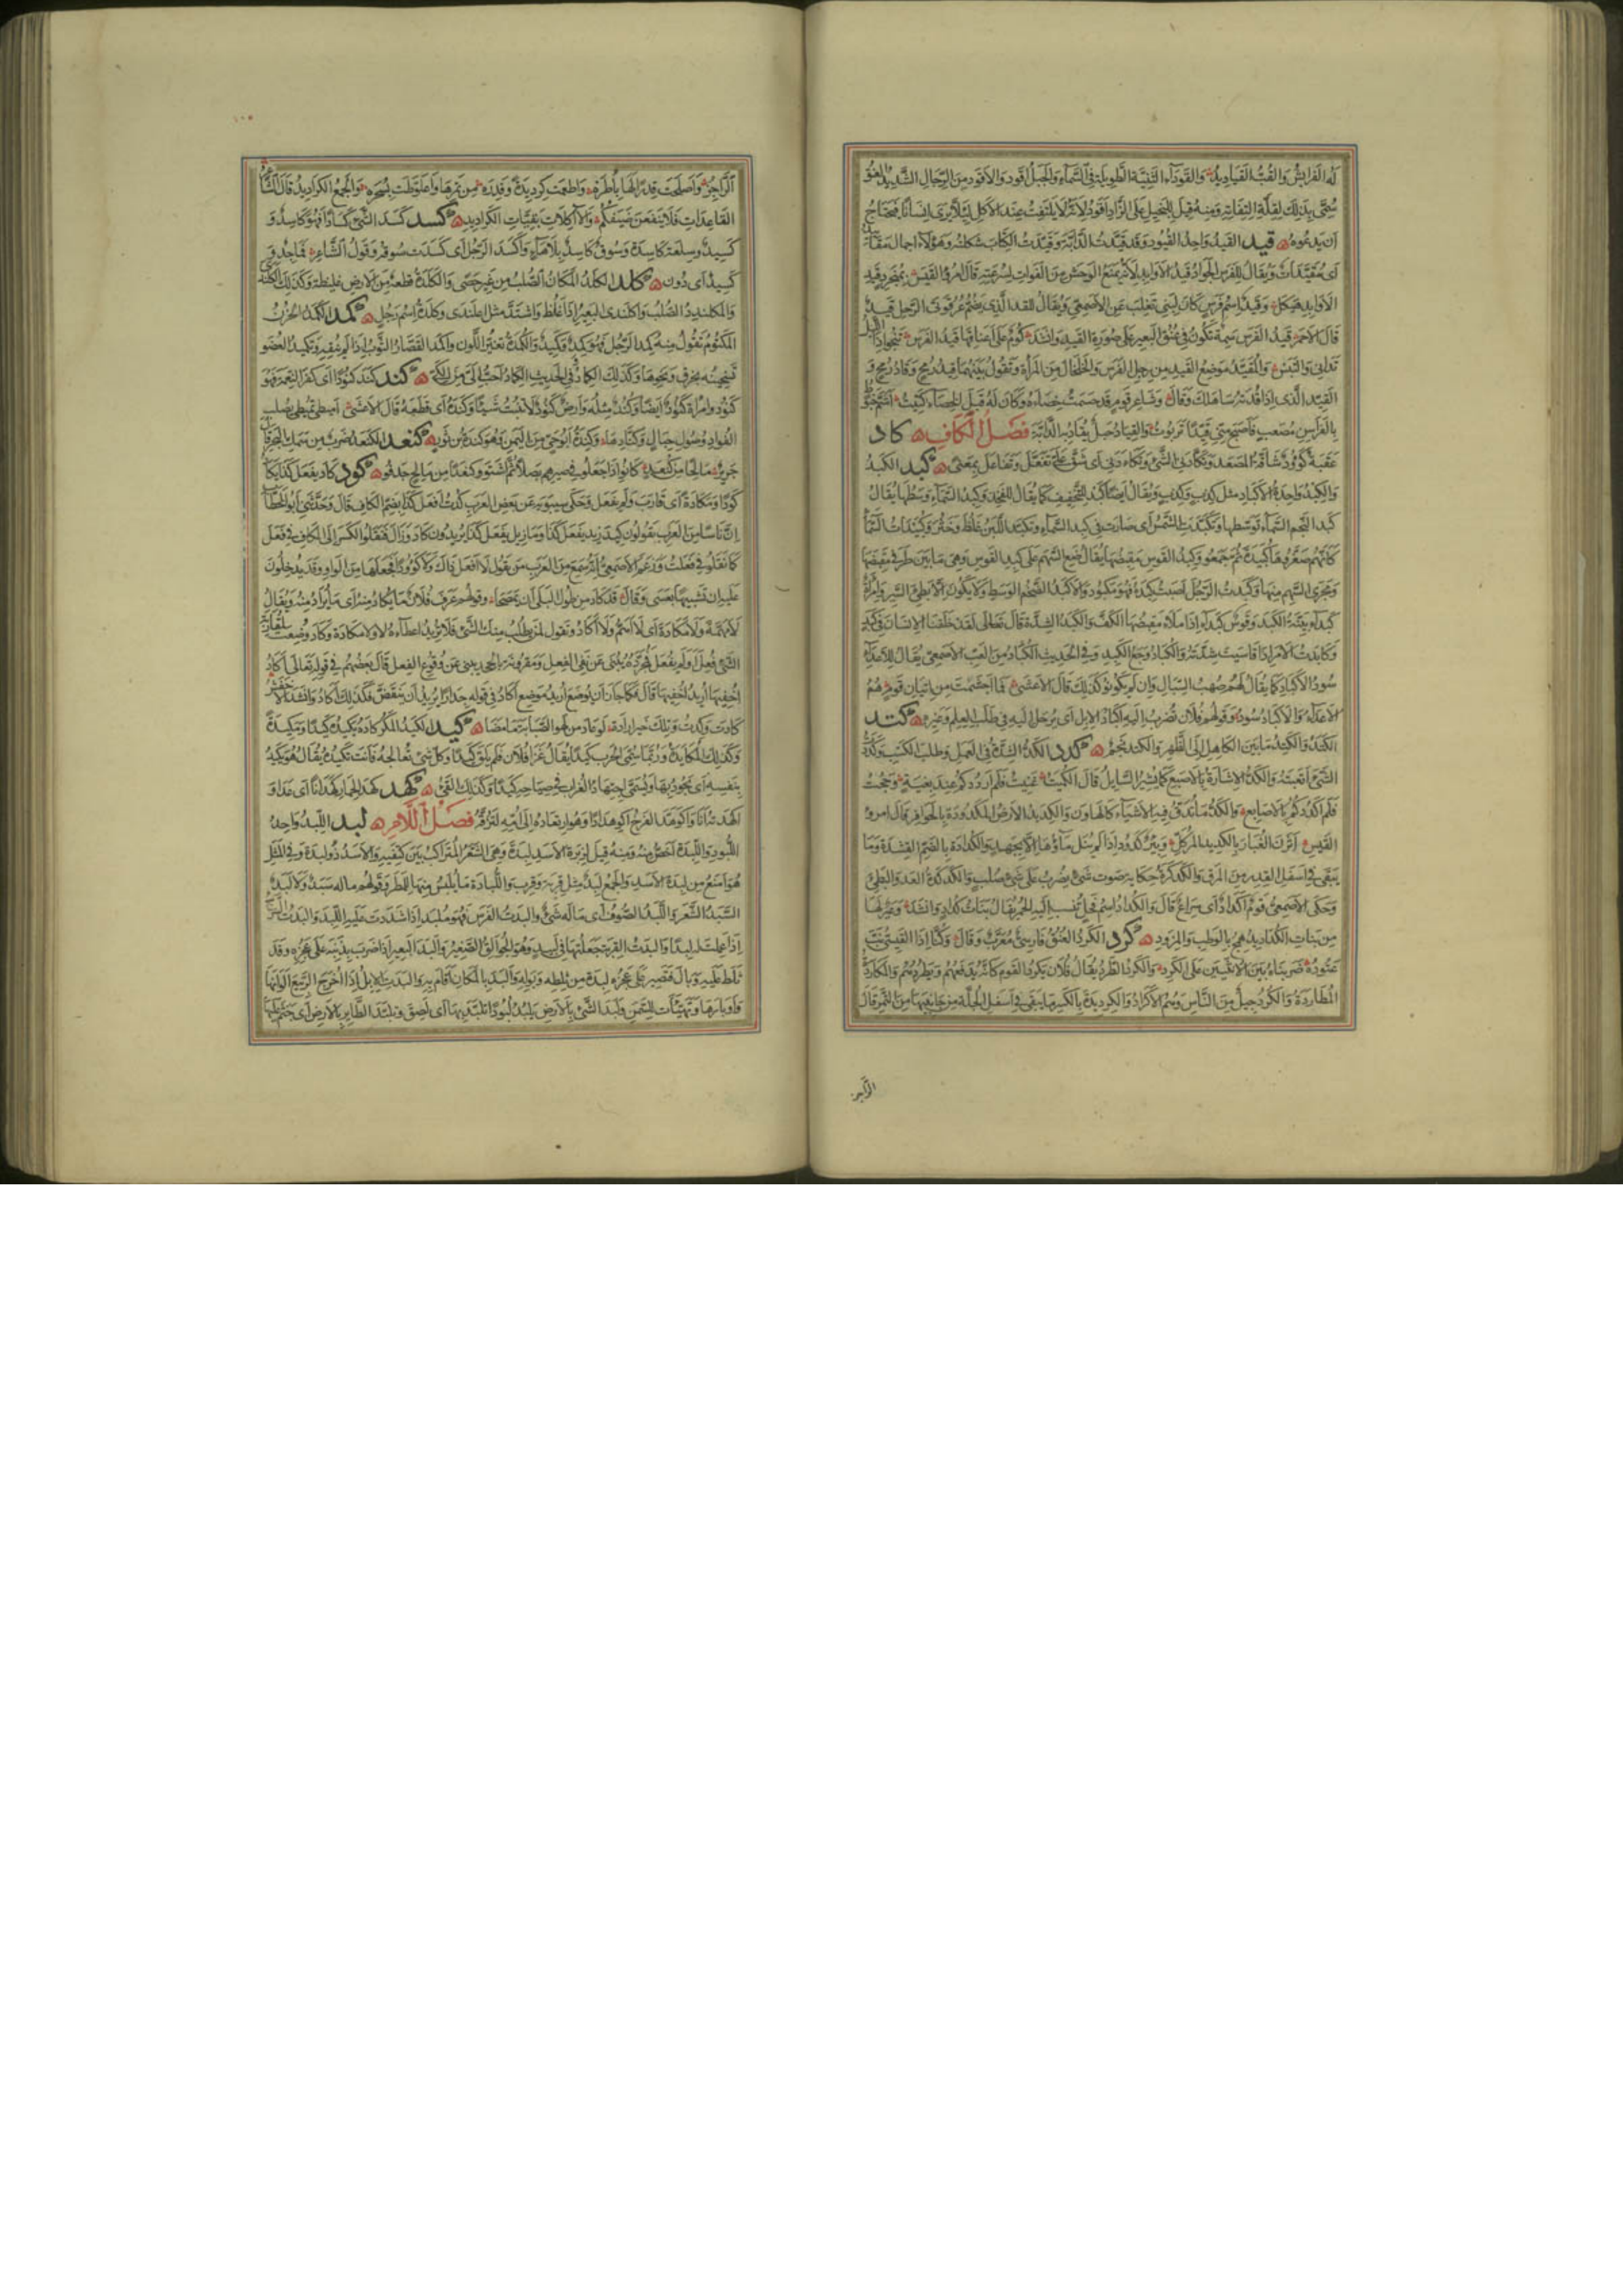 له الفرايش والقب القياديد والقوداء الثنية الطويلة في السماء والجبل اقود والاقود من الرجال الشديد العنق
سمي بذلك لقلة التفاته ومنه قيل للبخيل على الزاد اقود لانه لا يلتفت عند الاكل لئلا يرى انسانا فيحتاج
ان يدعوه قيد القيد واحد القيود وقد قيدت الدابة وقيدت الكتاب شكلته وهؤلاء اجمال مقاييد
اي مقيدات ويقال للفرس الجواد قيد الاوابد لانه يمنع الوحش من الفوات لسرعته قال امرؤ القيس بمنجرد قيد
الاوابد هيكل وقيد اسم فرس كان لبني تغلب عن الاصمعي ويقال للقد الذي يضم عرقوتي الرحل قيد
قال الاحمر قيد الفرس سمة تكون في عنق البعير على صورة القيد وانشد كوم على اعناقها قيد الفرس تنجو اذا الليل
تدانى والتبس والمقيد موضع القيد من رجل الفرس والخلخال من المرأة وتقول بينهما قيد رمح وقاد رمح و
القيد الذي اذا قدته ساهلك وقال وشاعر قوم قد حسمت خصاءه وكان له قبل الخصاء كتيت اشم خبوط
بالفراسن مصعب فاصبح مني قيدا تربوت والقياد حبل يقاد به الدابة فصل الكاف كاد
عقبة كؤود شاقة المصعد وتكأدني الشيء وتكاءدني اي شق علي تفعل وتفاعل بمعنى كبد الكبد
والكبد واحدة الاكباد مثل كذب وكذب ويقال ايضا كبد للتخفيف كما يقال للفخذ فخذ وكبد السماء وسطها يقال
كبد النجم السماء توسطها وتكبدت الشمس اي صارت في كبد السماء وتكبد اللبن غلظ وخثر وكبيدات السماء
كانهم صغروها كبيدة ثم جمعوا وكبد القوس مقبضها يقال ضع السهم على كبد القوس وهي ما بين طرفي مقبضها
ومجرى السهم منها وكبدت الرجل اصبت كبده فهو مكبود والاكبد الضخم الوسط ولا يكون الا بطيء السير وامرأة
كبداء بينة الكبد وقوس كبداء اذا ملأ مقبضها الكف والكبد الشدة قال تعالى لقد خلقنا الانسان في كبد
وكابدت الامر اذا قاسيت شدته والكباد وجع الكبد وفي الحديث الكباد من العب الاصمعي يقال للاعداء
سود الاكباد كما يقال لهم صهب السبال وان لم يكونوا كذلك قال الاعشى فما اجشمت من اتيان قوم هم
الاعداء والاكباد سود وقولهم فلان تضرب اليه اكباد الابل اي يرحل اليه في طلب العلم وغيره كتد
الكتد والكتد ما بين الكاهل الى الظهر والكتد نجم كدد الكد الشدة في العمل وطلب الكسب وكددت
الشيء اتعبته والكد الاشارة بالاصبع كما يشير السايل قال الكميت غنيت فلم ارددكم عند بغية وحجت
فلم اكددكم بالاصابع والكد ما يدق فيه الاشياء كالهاون والكديد الارض المكدودة بالحوافر قال امرؤ
القيس اثرن الغبار بالكديد المركل وبئر كدود اذا لم ينل ماؤها الا بجهد والكدادة بالضم القشدة وما
يبقى في اسفل القدر من المرق والكدكدة حكاية صوت شيء يضرب على شيء صلب والكدكدة العدو البطيء
وحكى الاصمعي قوم اكداد اي سراع قال والكداد اسم فحل تنسب اليه الحمر يقال بنات كداد وانشد وعير لها
من بنات الكداد يدهمج بالوطب والمزود كرد الكرد العنق فارسي معرب وقال وكنا اذا القيسي نب
عتوده ضربناه بين الانثيين على الكرد والكرد الطرد يقال فلان يكرد القوم كانه يدفعهم ويطردهم والمكاردة
المطاردة والكرد جيل من الناس وهم الاكراد والكرديدة بالكسر ما يبقى في اسفل الجلة من جانبيها من التمر قال
الراجز
الراجز واصلحت قدرا لها باطره واطعمت كرديدة وفدره من تمرها واعلوطت بسحره والجمع الكراديد قال الشاعر
القاعدات فلا ينفعن ضيفكم والاكلات بقيات الكراديد كسد كسد الشيء كسادا فهو كاسد و
كسيد وسلعة كاسدة وسوق كاسد بلا هاء واكسد الرجل اي كسدت سوقه وقول الشاعر فماجد و
كسيد اي دون كلد الكلد المكان الصلب من غير حصى والكلدة قطعة من الارض غليظة وكذلك الكلندى
والمكلندد الصلب واكلندى البعير اذا غلظ واشتد مثل اعلندى وكلدة اسم رجل كمد الكمد الحزن
المكتوم تقول منه كمد الرجل فهو كمد وكميد والكمدة تغير اللون واكمد القصار الثوب اذا لم ينقه وتكميد العضو
تسخينه بخرق ونحوها وكذلك الكماد وفي الحديث الكماد احب الي من الكي كند كند كنودا اي كفر النعمة فهو
كنود وامرأة كنود ايضا وكند مثله وارض كنود لا تنبت شيئا وكنده اي قطعه قال الاعشى اميطي تميطي بصلب
الفواد وصول حبال وكنادها وكندة ابو حي من اليمن وهو كندة بن ثور كنعد الكنعد ضرب من سمك البحر قال
جرير كانوا اذا جعلوا في صيرهم بصلا ثم اشتووا كنعدا من مالح جدفوا كود كاد يفعل كذا يكاد
كودا ومكادة اي قارب ولم يفعل وحكى سيبويه عن بعض العرب كدت افعل كذا بضم الكاف قال وحدثني ابو الخطاب
ان ناسا من العرب يقولون كيد زيد يفعل كذا وما زيل يفعل كذا يريدون كاد وزال فنقلوا الكسر الى الكاف في فعل
كما نقلوا في فعلت وزعم الاصمعي انه سمع من العرب من يقول لا افعل ذلك ولا كودا فجعلها من الواو وقد يدخلون
عليه ان تشبيها بعسى وقال قد كاد من طول البلى ان يمصحا وقولهم عرف فلان ما يكاد منه اي ما يراد منه ويقال
لا مهمة ولا مكادة اي لا اهم ولا اكاد وتقول لمن يطلب منك الشيء فلا تريد اعطاءه لا ولا مكادة وكاد وضعت لمقاربة
الشيء فعل او لم يفعل فمجرده ينبي عن نفي الفعل ومقرونه بالجحد ينبي عن وقوع الفعل قال بعضهم في قوله تعالى اكاد
اخفيها اريد اخفيها قال فكما جاز ان يوضع اريد موضع اكاد في قوله جدارا يريد ان ينقض فكذلك اكاد وانشد الاخفش
كادت وكدت وتلك خير ارادة لو عاد من لهو الصبابة ما مضى كيد الكيد المكر كاده يكيده كيدا ومكيدة
وكذلك المكايدة وربما سمي الحرب كيدا يقال غزا فلان فلم يلق كيدا وكل شيء تعالجه فانت تكيده يقال هو يكيد
بنفسه اي يجود بها ويسمى اجتهاد الغراب في صياحه كيدا وكذلك القيء كهد كهد الحمار كهدانا اي عدا و
اكهدته انا واكوهد الفرخ اكوهدادا وهو ارتعاده الى امه لتزقه فصل اللام لبد اللبد واحد
اللبود واللبدة اخص منه ومنه قيل لزبرة الاسد لبدة وهي الشعر المتراكب بين كتفيه والاسد ذو لبدة وفي المثل
هو امنع من لبدة الاسد والجمع لبد مثل قربة وقرب واللبادة ما يلبس منها للمطر وقولهم ماله سبد ولا لبد
السبد الشعر واللبد الصوف اي ماله شيء والبدت الفرس فهو ملبد اذا شددت عليه اللبد والبدت السرج
اذا عملت له لبدا والبدت القربة جعلتها في لبيد وهو الجوالق الصغير والبد البعير اذا ضرب بذنبه على عجزه وقد
ثلط عليه وبال فيصير على عجزه لبدة من ثلطه وبوله والبد بالمكان اقام به والبدت الابل اذا اخرج الربيع الوانها
واوبارها وتهيأت للسمن ولبد الشيء بالارض يلبد لبودا تلبد بها اي لصق وتلبد الطاير بالارض اي جثم عليها